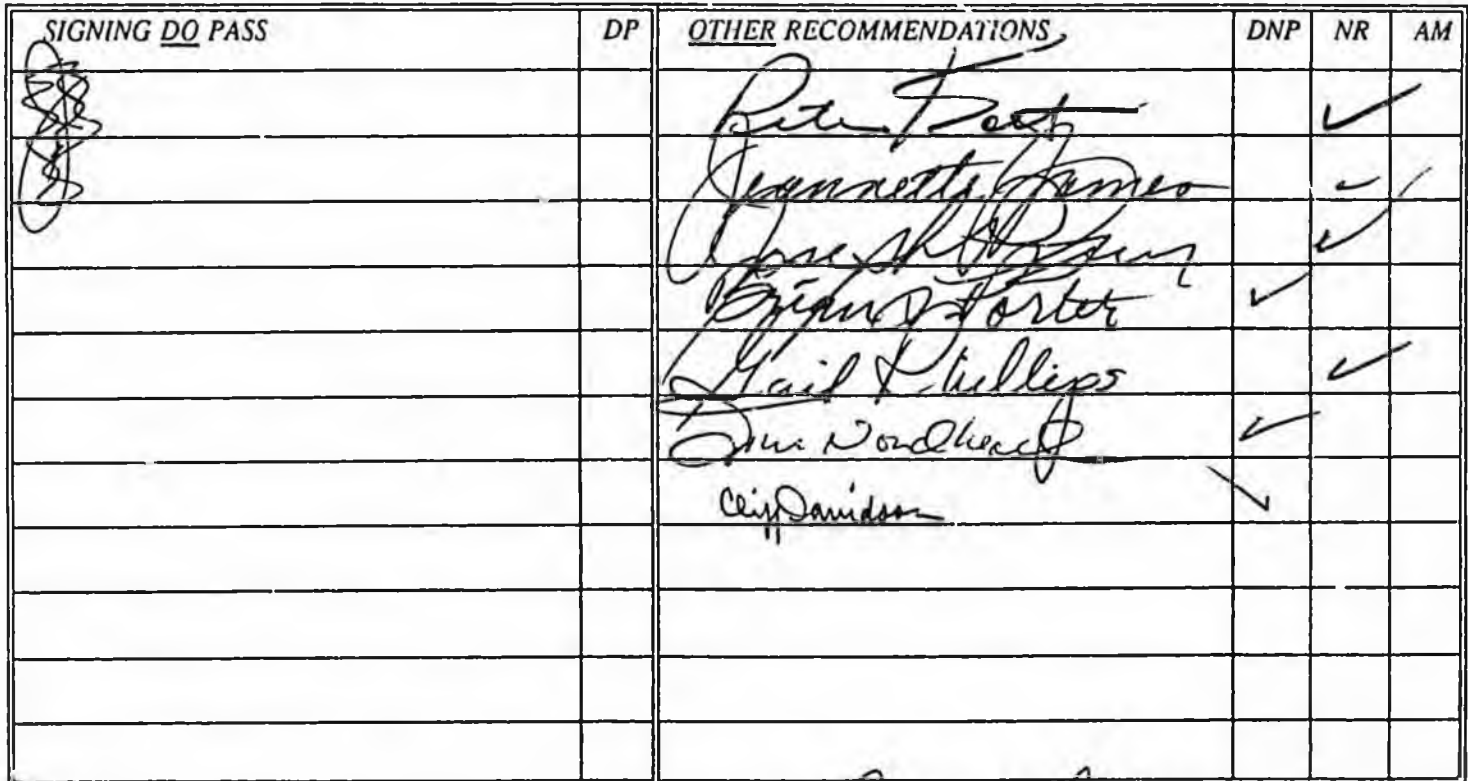 SIGNING DO PASS DP OTHER RECOMMENDATIONS DNP NR AM
Pete ✓
Jeannette James ✓
✓
Brian Porter ✓
Gail Phillips ✓
✓
Cliff Davidson ✓